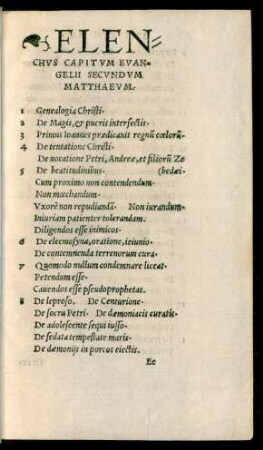 ELEN-
CHVS CAPITVM EVAN-
GELII SECVNDVM
MATTHAEVM.
1 Genealogia Christi.
2 De Magis, & pueris interfectis.
3 Primus Ioannes prædicauit regnū cœlorū.
4 De tentatione Christi.
De uocatione Petri, Andreæ, et filiorū Ze
5 De beatitudinibus. (bedæi.
Cum proximo non contendendum.
Non mœchandum.
Vxorē non repudiandā. Non iurandum.
Iniuriam patienter tolerandam.
Diligendos esse inimicos.
6 De eleemosyna, oratione, ieiunio.
De contemnenda terrenorum cura.
7 Quomodo nullum condemnare liceat.
Petendum esse.
Cauendos esse pseudoprophetas.
8 De leproso. De Centurione.
De socru Petri. De dæmoniacis curatis.
De adolescente sequi iusso.
De sedata tempestate maris.
De dæmonijs in porcos eiectis.
Ee